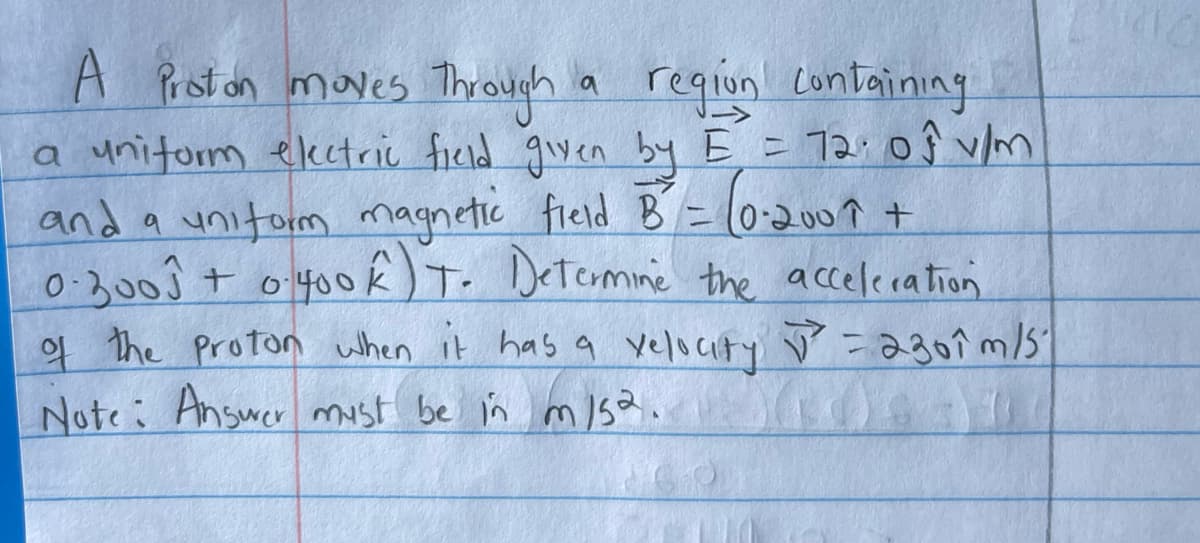 A Proton moves Through a region containing
a uniform electric field given by E⃗ = 72.0ĵ v/m
and a uniform magnetic field B⃗ = (0.200î +
0.300ĵ + 0.400k̂) T. Determine the acceleration
of the proton when it has a velocity V⃗ = 230î m/s.
Note: Answer must be in m/s².